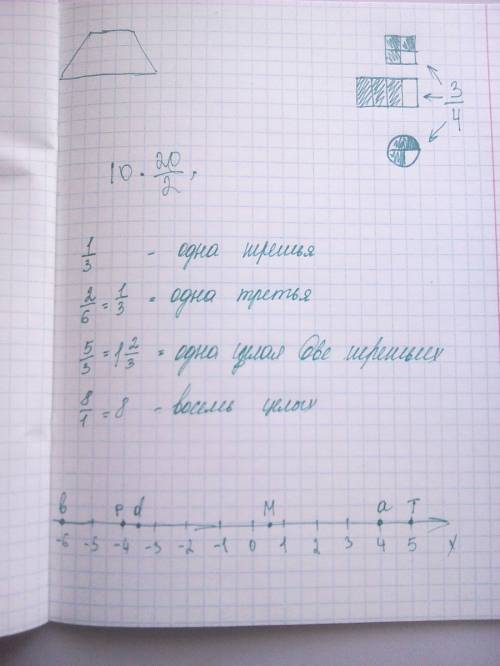 3/4
10 · 20/2,
1/3 - одна третья
2/6 = 1/3 = одна третья
5/3 = 1 2/3 = одна целая две третьих
8/1 = 8 - восемь целых
b P d M a T
-6 -5 -4 -3 -2 -1 0 1 2 3 4 5 x